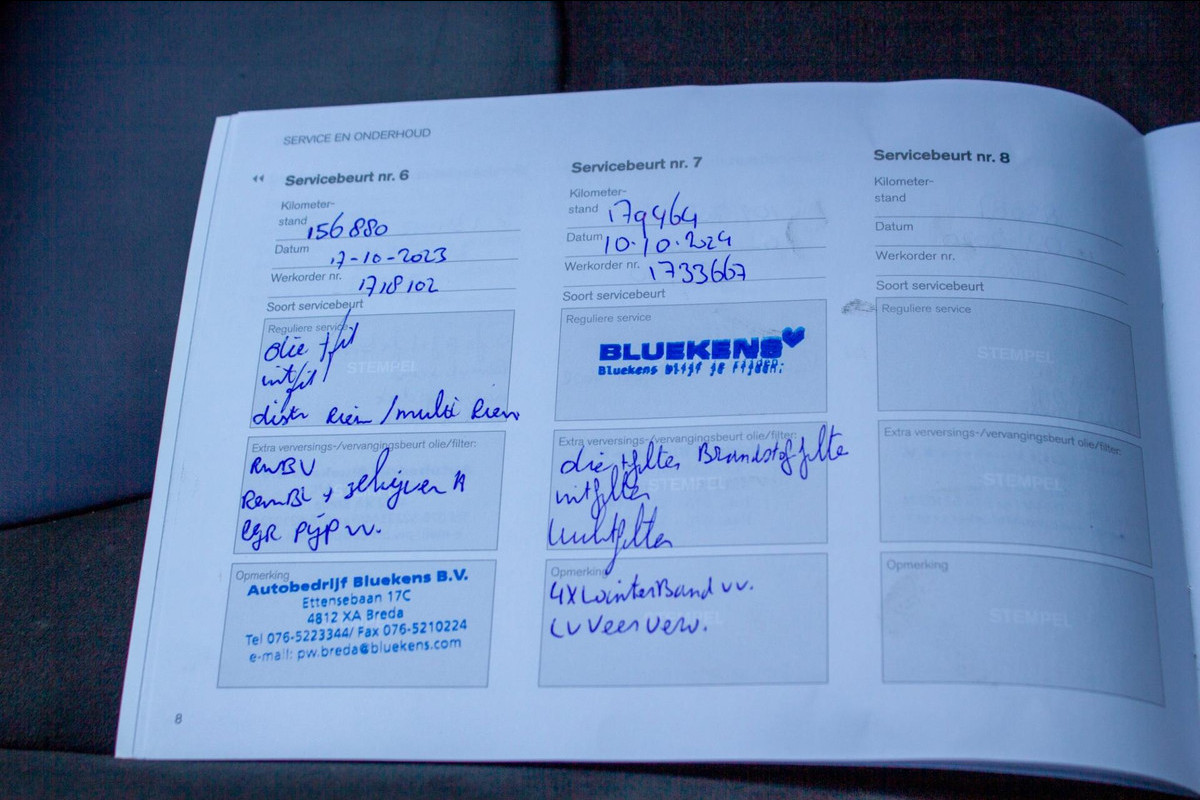 SERVICE EN ONDERHOUD
Servicebeurt nr. 6
Kilometer-
stand 156880
Datum 17-10-2023
Werkorder nr. 1718102
Soort servicebeurt
Reguliere service
olie + fil
int fil
distr Riem / multi Riem
STEMPEL
Extra verversings-/vervangingsbeurt olie/filter:
RWBV
RemBL + schijven A
EGR pijp vv.
Opmerking
Autobedrijf Bluekens B.V.
Ettensebaan 17C
4812 XA Breda
Tel 076-5223344/ Fax 076-5210224
e-mail: pw.breda@bluekens.com
8
Servicebeurt nr. 7
Kilometer-
stand 179464
Datum 10.10.2024
Werkorder nr. 1733667
Soort servicebeurt
Reguliere service
BLUEKENS
Bluekens blijf je rijden.
Extra verversings-/vervangingsbeurt olie/filter:
olie + filter Brandstoffilter
intfilter
Luchtfilter
STEMPEL
Opmerking
4X WinterBand vv.
LV Veer verv.
Servicebeurt nr. 8
Kilometer-
stand
Datum
Werkorder nr.
Soort servicebeurt
Reguliere service
STEMPEL
Extra verversings-/vervangingsbeurt olie/filter:
STEMPEL
Opmerking
STEMPEL